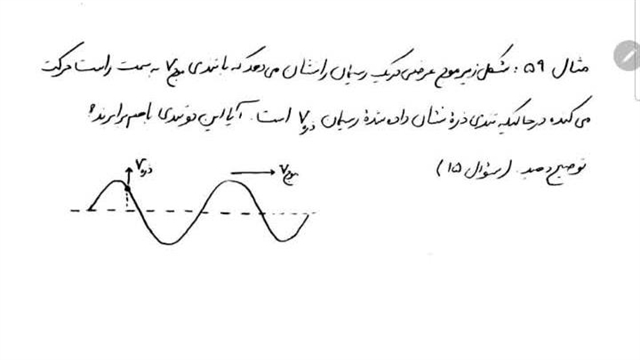 مثال ۵۹: شکل زیر موج عرضی در یک ریسمان را نشان می‌دهد که با تندی v موج به سمت راست حرکت
می‌کند، در حالیکه تندی ذرهٔ نشان داده شدهٔ ریسمان v ذره است. آیا این دو تندی با هم برابرند؟
توضیح دهید. (سؤال ۱۵)
v ذره
v موج